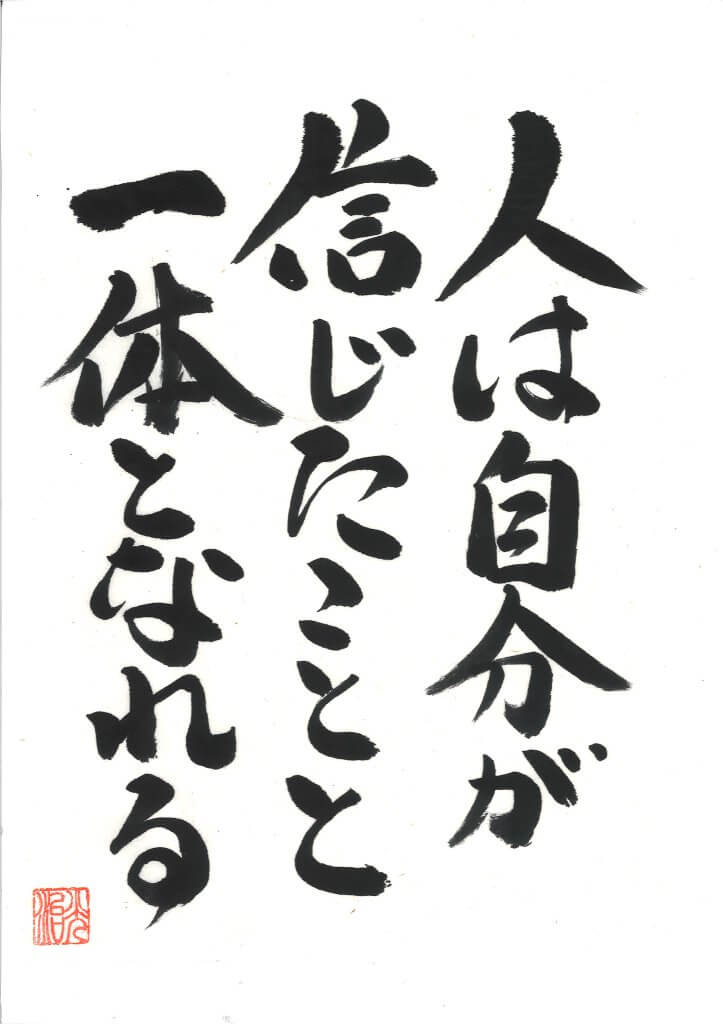 人は自分が
信じたことと
一体となれる